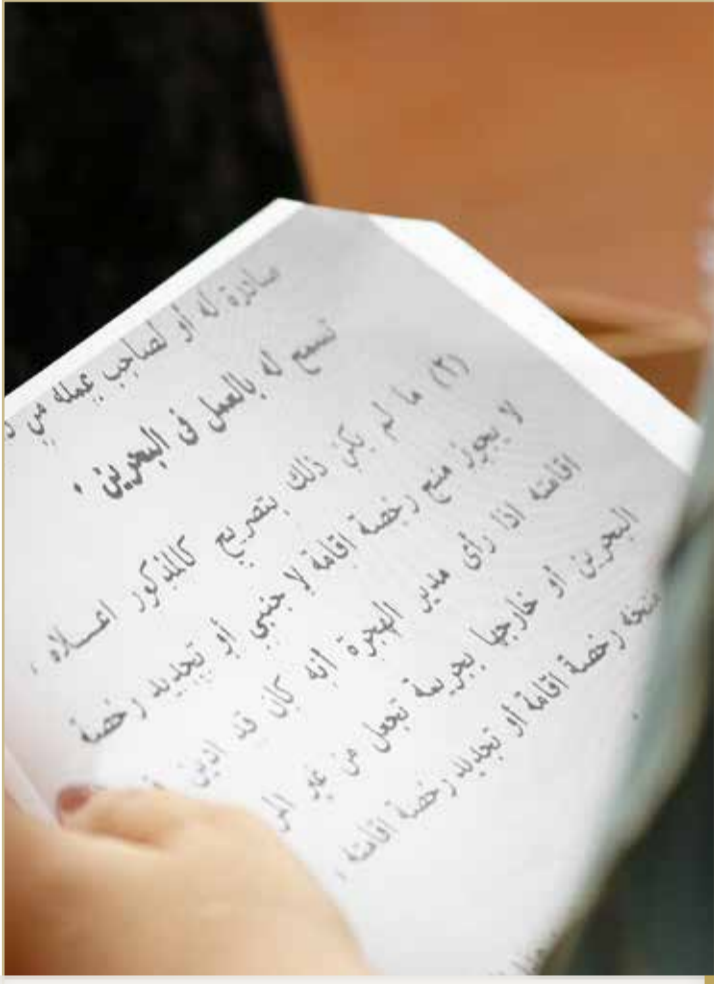 صادرة له أو لصاحب عمله من
تسمح له بالعمل في البحرين .
(٢) ما لم يكن ذلك بتصريح كالمذكور اعـــلاه ،
لا يجوز منح رخصة اقامة لاجنبي أو تجديد رخصة
اقامته اذا رأى مدير الهجرة انه كان قد ادين
البحرين أو خارجها بجريمة تجعل من غير
منحه رخصة اقامة أو تجديد رخصة اقامته .